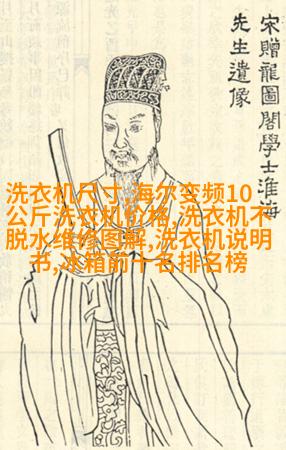 宋贈龍圖閣學士淮海
先生遺像
洗衣机尺寸,海尔变频10
公斤洗衣机价格,洗衣机不
脱水维修图解,洗衣机说明
书,冰箱前十名排名榜